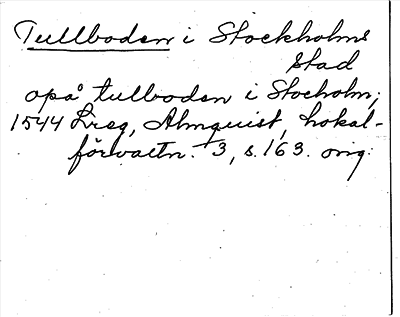 Tullboden i Stockholms
stad
opå tullboden i Stocholm,
1544 Lreg, Almquist, Lokal-
förvaltn. 3, s. 163. orig.